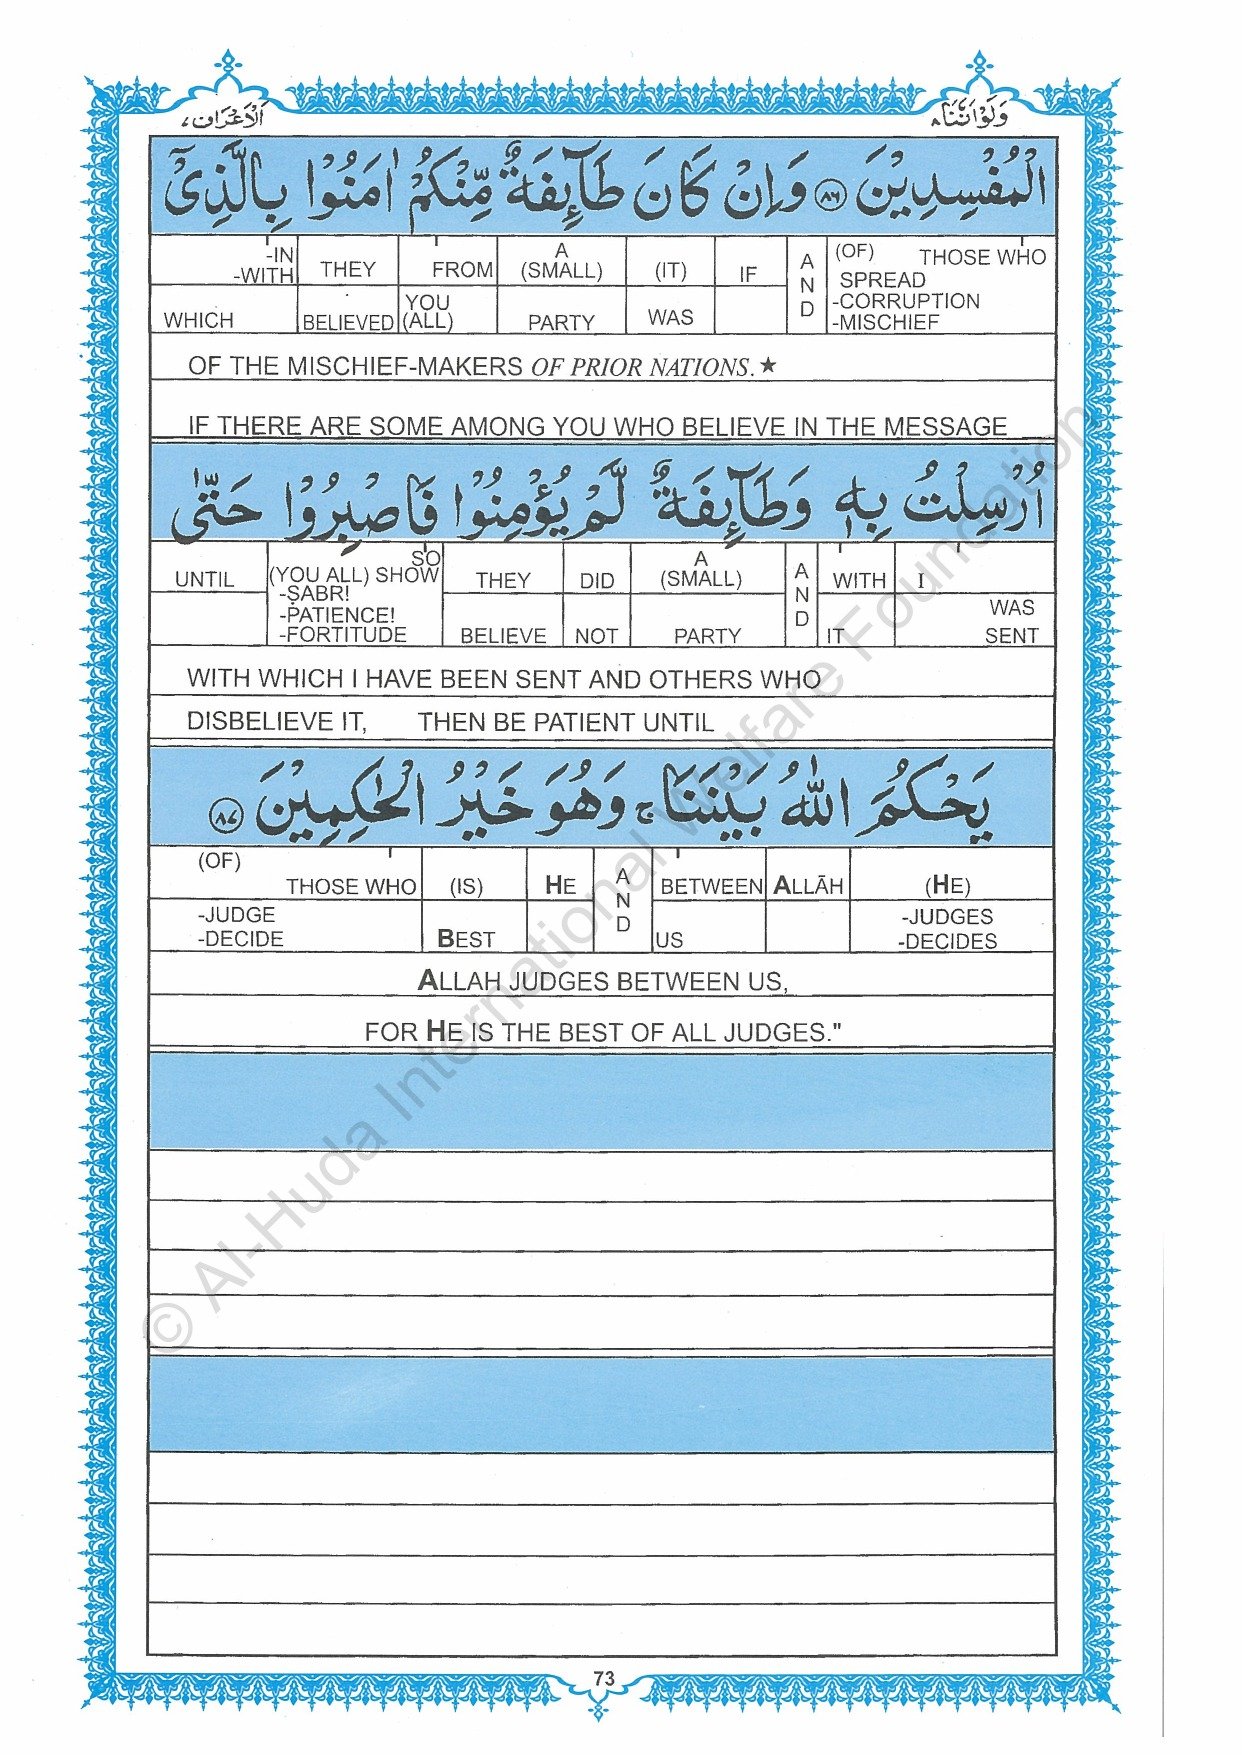 الْاَعْرَاف ٧
وَلَوْ اَنَّنَا ٨
الْمُفْسِدِيْنَ ﴿٨٦﴾ وَاِنْ كَانَ طَآئِفَةٌ مِّنْكُمْ اٰمَنُوْا بِالَّذِيْٓ
(OF) THOSE WHO SPREAD -CORRUPTION -MISCHIEF
AND
IF
(IT) WAS
A (SMALL) PARTY
FROM YOU (ALL)
THEY BELIEVED
-IN -WITH WHICH
OF THE MISCHIEF-MAKERS OF PRIOR NATIONS.★
IF THERE ARE SOME AMONG YOU WHO BELIEVE IN THE MESSAGE
اُرْسِلْتُ بِهٖ وَطَآئِفَةٌ لَّمْ يُؤْمِنُوْا فَاصْبِرُوْا حَتّٰى
I WAS SENT
WITH IT
AND
A (SMALL) PARTY
DID NOT
THEY BELIEVE
SO (YOU ALL) SHOW -ṢABR! -PATIENCE! -FORTITUDE
UNTIL
WITH WHICH I HAVE BEEN SENT AND OTHERS WHO
DISBELIEVE IT, THEN BE PATIENT UNTIL
يَحْكُمَ اللّٰهُ بَيْنَنَا ۚ وَهُوَ خَيْرُ الْحٰكِمِيْنَ ﴿٨٧﴾
(HE) -JUDGES -DECIDES
ALLĀH
BETWEEN US
AND
HE
(IS) BEST
(OF) THOSE WHO -JUDGE -DECIDE
ALLAH JUDGES BETWEEN US,
FOR HE IS THE BEST OF ALL JUDGES."
73
© Al-Huda International Welfare Foundation